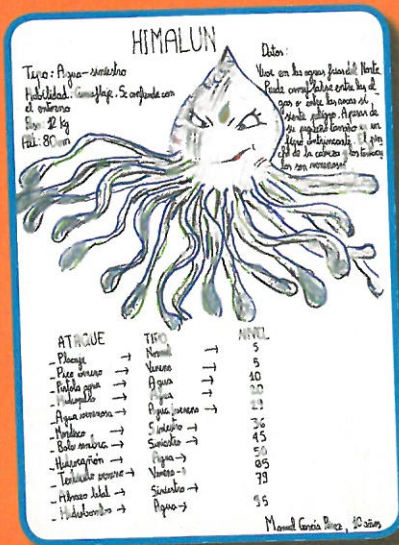 HIMALUN
Tipo: Agua-siniestro
Habilidad: Camuflaje. Se confunde con
el entorno
Peso: 12 kg
Alt.: 80 cm
Datos:
Vive en las aguas frías del Norte
Puede camuflarse entre las al
gas o entre las rocas si
siente peligro. A pesar de
su pequeño tamaño es un
El pin
cho de la cabeza y los tentácu
los son venenosos
ATAQUE TIPO NIVEL
_ Placaje → Normal → 5
_ Pico veneno → Veneno → 5
_ Pistola agua → Agua → 10
_ Hidropulso → Agua → 20
_ Agua venenosa → Agua →
_ Mordisco → Siniestro → 36
_ Bola sombra → Siniestro → 45
_ Hidrocañón → Agua → 50
_ Tentáculo veneno → Veneno →
_ Abrazo letal → Siniestro → 79
_ Hidrobomba → Agua → 95
Manuel García Pérez, 10 años